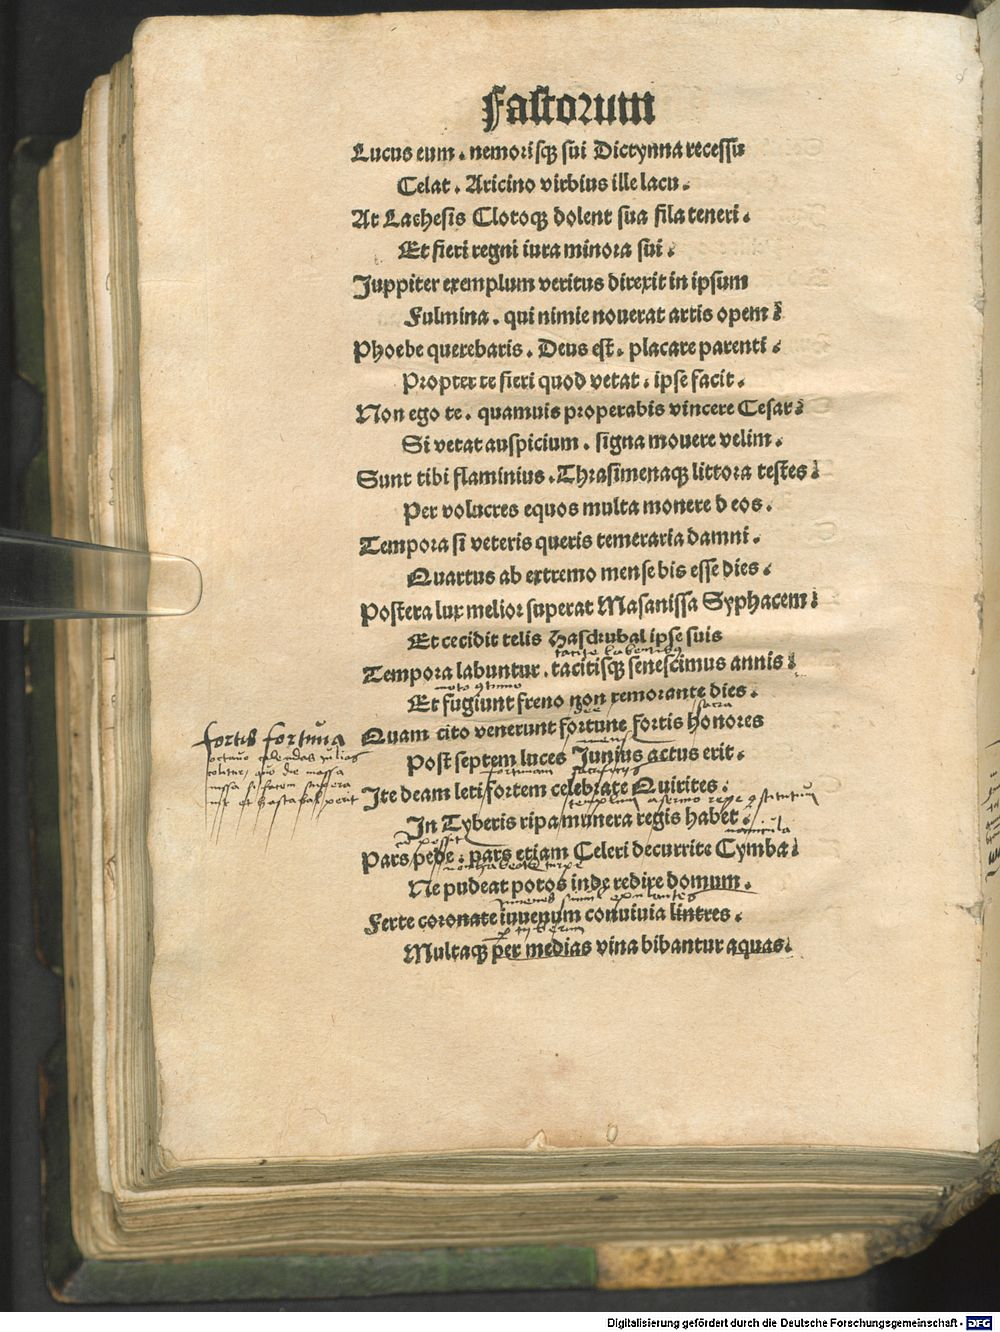 Fastorum
Lucus eum . nemorisqꝫ sui Dictynna recessu
Celat . Aricino virbius ille lacu .
At Lachesis Clotoqꝫ dolent sua fila teneri .
Et fieri regni iura minora sui .
Juppiter exemplum veritus direxit in ipsum
Fulmina . qui nimie nouerat artis opem :
Phoebe querebaris . Deus est . placare parenti .
Propter te fieri quod vetat . ipse facit .
Non ego te . quamuis properabis vincere Cesar :
Si vetat auspicium . signa mouere velim .
Sunt tibi flaminius . Thrasimenaqꝫ littora testes :
Per volucres equos multa monere d eos .
Tempora si veteris queris temeraria damni .
Quartus ab extremo mense bis esse dies .
Postera lux melior superat Masanissa Syphacem :
Et cecidit telis Hasdrubal ipse suis
tacite labentibꝰ
Tempora labuntur . tacitisqꝫ senescimus annis :
Et fugiunt freno non remorante dies .
sacra
Quam cito venerunt fortune fortis honores
fortis fortuna
mens
Post septem luces Junius actus erit .
octauo calendas iulias
colitur
fortunam
Ite deam leti fortem celebrate Quirites .
templum a seruo rege 
In Tyberis ripa munera regis habet .
nauicula
Pars pede . pars etiam Celeri decurrite Cymba :
Ne pudeat potos inde redire domum .
Ferte coronate iuuenum conuiuia lintres .
Multaqꝫ per medias vina bibantur aquas .
Digitalisierung gefördert durch die Deutsche Forschungsgemeinschaft - DFG